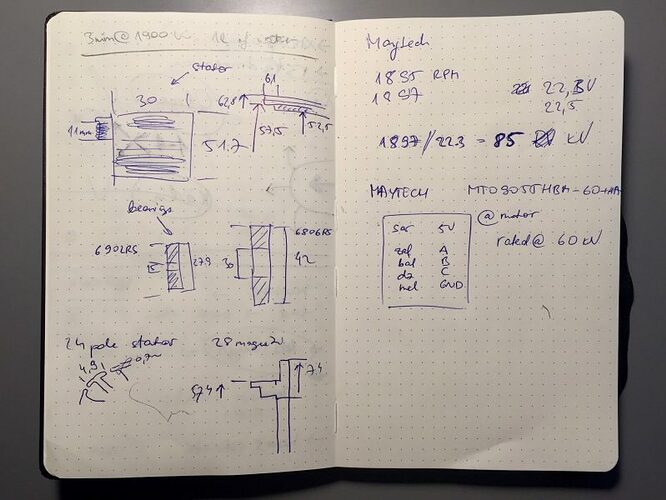 3min@ 1900
stator
30
11mm
51.7
61
62.8
57,5
52,5
bearings
6902RS
15
27.9
6806RS
30
42
24 pole stator
28 magnets
4,9
0,7m
57.4
7.4
Maytech
1895 RPM 22,5V
1897 22,5
1897//22.3 = 85 kV
MAYTECH
@ motor
sar 5V
zel A
bal B
dz C
mel GND
rated @ 60 kV